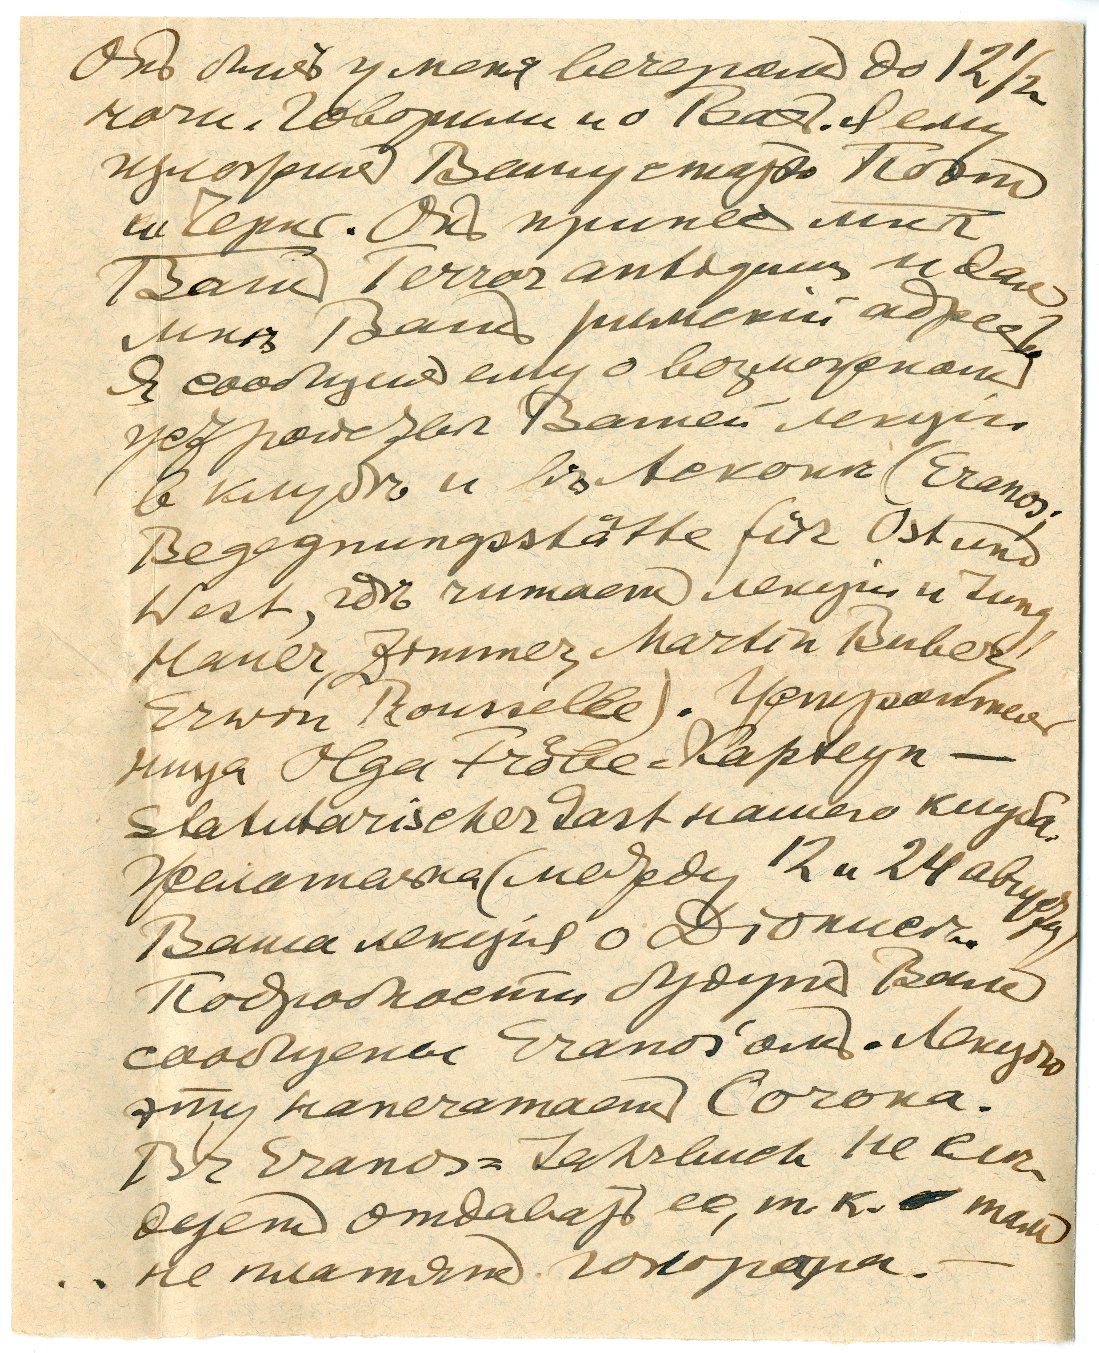 Онъ былъ у меня вечеромъ до 12 1/2
ночи. Говорили и о Вас. Я ему
Вашу статью Поэтъ
и Чернь. Онъ принес мнѣ
Вашъ Terror antiquus и далъ
мнѣ Вашъ римскій адресъ.
Я сообщилъ ему о возможности
устройства Вашей лекціи
в клубѣ и въ Асконѣ (Eranos;
Begegnungsstätte für Ost und
West, гдѣ читает лекціи и Jung,
Hauer, Zimmer, Martin Buber,
Erwin Rousselle). Устроитель-
ница Olga Fröbe-Kapteyn —
statutarischer Gast нашего клуба.
Желательна (между 12 и 24 августа)
Ваша лекція о Діонисѣ.
Подробности будутъ Вамъ
сообщены Eranos'омъ. Лекцію
эту напечатаетъ Corona.
Въ Eranos=Jahrbuch не слѣ-
дуетъ отдавать ее, т. к. тамъ
не платятъ гонорара. —